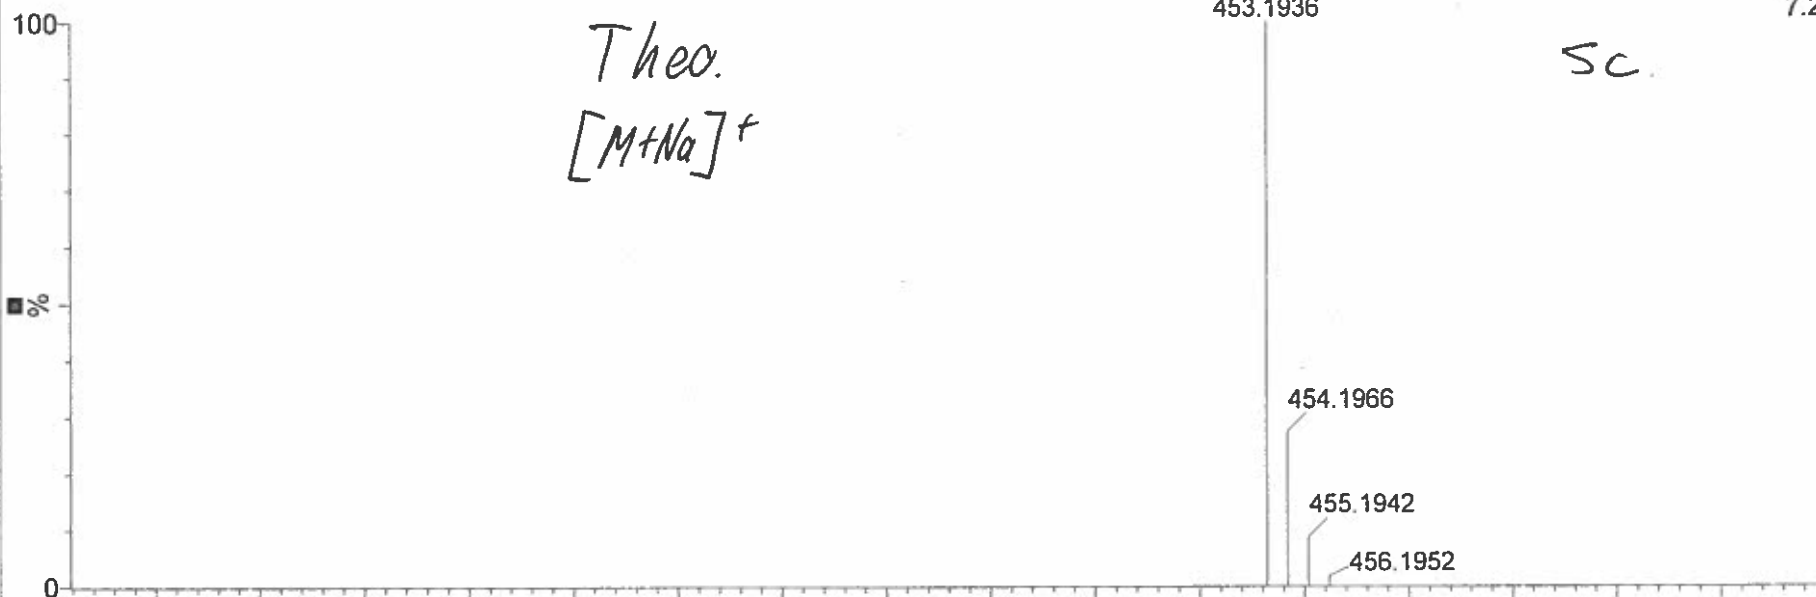 100
453.1936
Theo.
[M+Na]+
5c.
454.1966
%
455.1942
456.1952
0